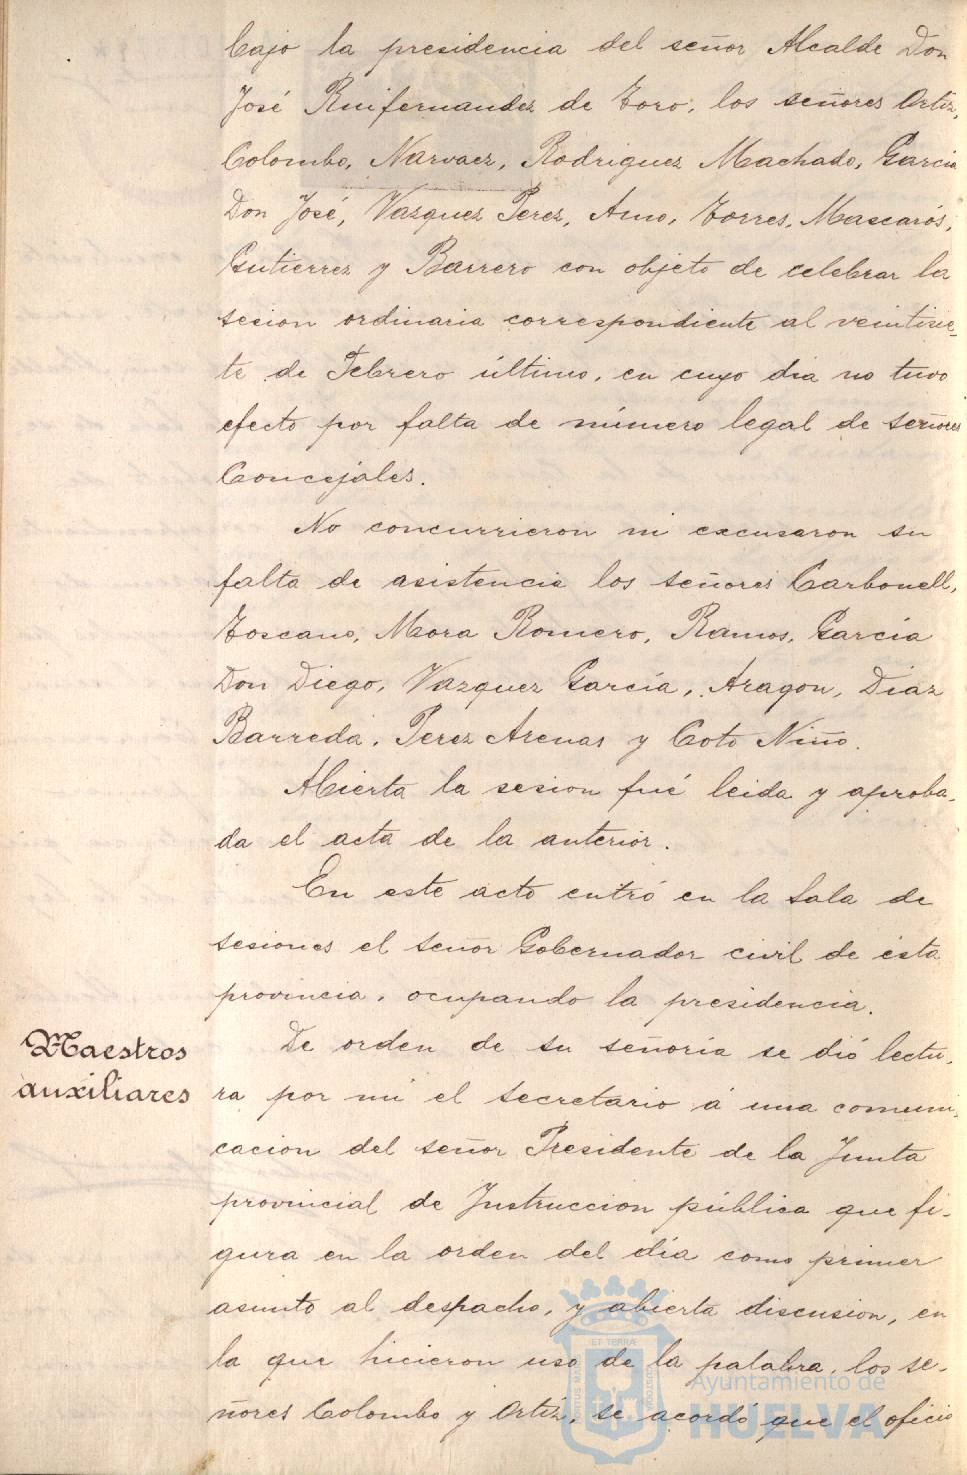 bajo la presidencia del señor Alcalde Don
José Ruifernandez de Toro, los señores Ortiz,
Colombo, Narvaez, Rodriguez Machado, Garcia
Don José, Vazquez Perez, Amo, Torres, Mascarós,
Gutierrez y Barrero con objeto de celebrar la
sesion ordinaria correspondiente al veintisie-
te de Febrero último, en cuyo dia no tuvo
efecto por falta de número legal de señores
Concejales.
No concurrieron ni excusaron su
falta de asistencia los señores Carbonell,
Toscano, Mora Romero, Ramos, García
Don Diego, Vazquez García, Aragon, Diaz
Barreda, Perez Arenas y Coto Niño.
Abierta la sesion fué leida y aproba-
da el acta de la anterior.
En este acto entró en la Sala de
sesiones el señor Gobernador civil de ésta
provincia, ocupando la presidencia.
Maestros
auxiliares
De orden de su señoría se dió lectu-
ra por mi el secretario á una comuni-
cacion del señor Presidente de la Junta
provincial de Instruccion pública que fi-
gura en la orden del día como primer
asunto al despacho, y abierta discusion, en
la que hicieron uso de la palabra, los se-
ñores Colombo y Ortiz, se acordó que el oficio
ET TERRÆ
Ayuntamiento de
HUELVA